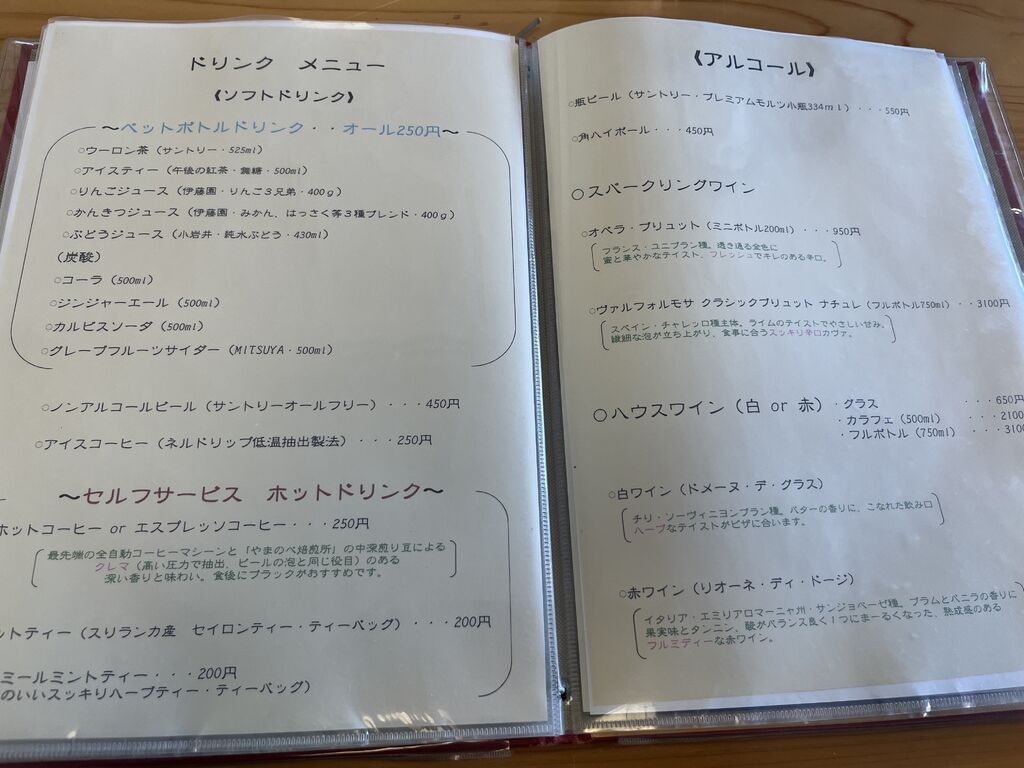 ドリンク　メニュー
《ソフトドリンク》
～ペットボトルドリンク・・オール250円～
○ウーロン茶（サントリー・525ml）
○アイスティー（午後の紅茶・無糖・500ml）
○りんごジュース（伊藤園・りんご３兄弟・400ｇ）
○かんきつジュース（伊藤園・みかん、はっさく等３種ブレンド・400ｇ）
○ぶどうジュース（小岩井・純水ぶどう・430ml）
（炭酸）
○コーラ（500ml）
○ジンジャーエール（500ml）
○カルピスソーダ（500ml）
○グレープフルーツサイダー（MITSUYA・500ml）
○ノンアルコールビール（サントリーオールフリー）・・・450円
○アイスコーヒー（ネルドリップ低温抽出製法）・・・250円
～セルフサービス　ホットドリンク～
ホットコーヒー or エスプレッソコーヒー・・・250円
最先端の全自動コーヒーマシーンと「やまのべ焙煎所」の中深煎り豆による
クレマ（高い圧力で抽出、ビールの泡と同じ役目）のある
深い香りと味わい。食後にブラックがおすすめです。
ットティー（スリランカ産　セイロンティー・ティーバッグ）・・・200円
ミールミントティー・・・200円
のいいスッキリハーブティー・ティーバッグ）
《アルコール》
○瓶ビール（サントリー・プレミアムモルツ小瓶334ｍｌ）・・・550円
○角ハイボール・・・450円
○スパークリングワイン
○オペラ・ブリュット（ミニボトル200ml）・・・950円
フランス・ユニブラン種。透き通る金色に
蜜と華やかなテイスト、フレッシュでキレのある辛口。
○ヴァルフォルモサ クラシックブリュット ナチュレ（フルボトル750ml）・・3100円
スペイン・チャレッロ種主体。ライムのテイストでやさしい甘み。
繊細な泡が立ち上がり、食事に合うスッキリ辛口カヴァ。
○ハウスワイン（白 or 赤）・グラス　・・・650円
・カラフェ（500ml）　・・・2100
・フルボトル（750ml）　・・・3100
○白ワイン（ドメーヌ・デ・グラス）
チリ・ソーヴィニヨンブラン種。バターの香りに、こなれた飲み口
ハーブなテイストがピザに合います。
○赤ワイン（リオーネ・ディ・ドージ）
イタリア・エミリアロマーニャ州・サンジョベーゼ種。プラムとバニラの香りに
果実味とタンニン、酸がバランス良く１つにまーるくなった、熟成感のある
フルミディーな赤ワイン。